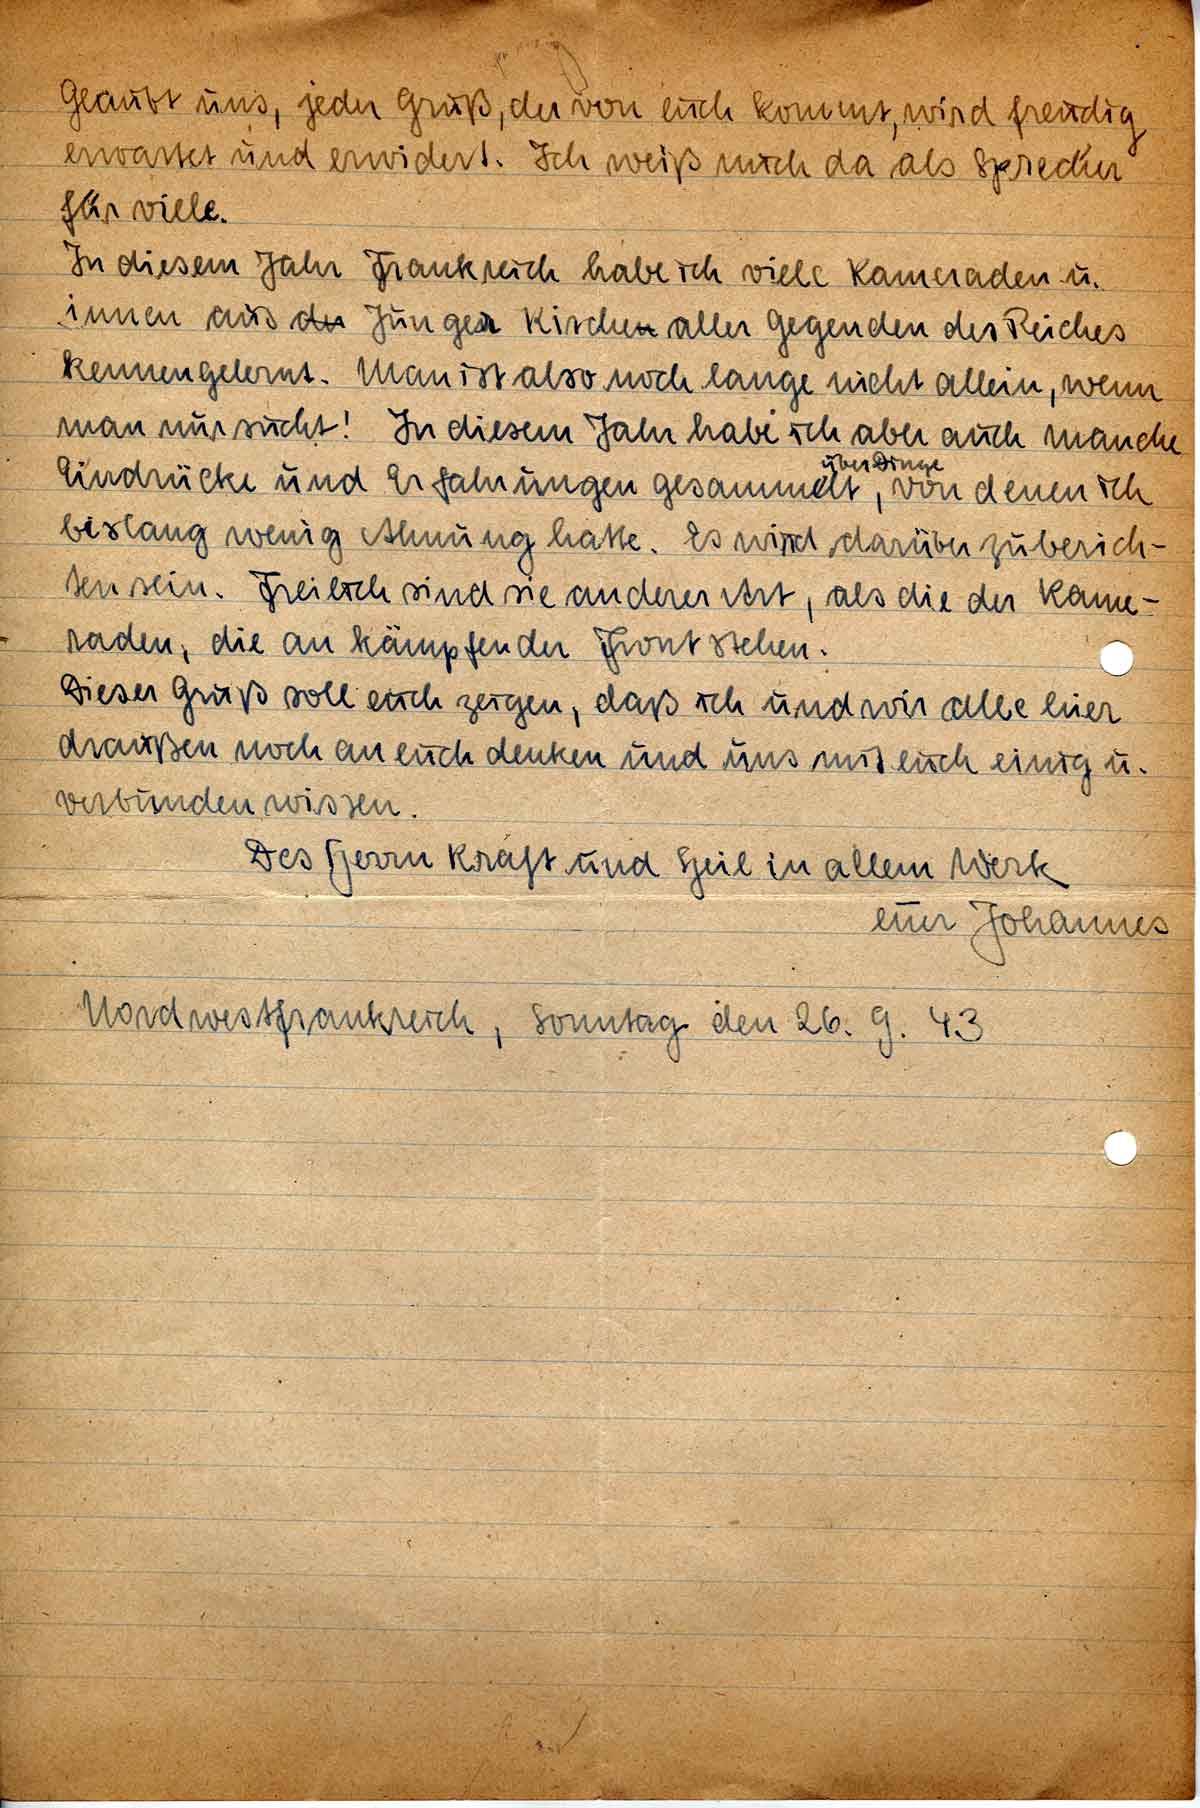 Geaubt uns, jeder Gruß, der von euch kommt, wird freudig
erwartet und erwidert. Ich weiß mich da als Sprecher
für viele.
In diesem Jahr Frankreich habe ich viele Kameraden u.
innen aus der Junger Kirchen aller Gegenden des Reiches
kennengelernt. Man ist also noch lange nicht allein, wenn
man nur sucht! In diesem Jahr habe ich aber auch manche
über Dinge
Eindrücke und Erfahrungen gesammelt, von denen ich
bislang wenig Ahnung hatte. Es wird darüber zu berich-
ten sein. Freilich sind sie anderer Art, als die der Kame-
raden, die an kämpfender Front stehen.
Dieser Gruß soll euch zeigen, daß ich und wir alle hier
draußen noch an euch denken und uns mit euch einig u.
verbunden wissen.
Des Herrn Kraft und Heil in allem Werk
euer Johannes
Nordwestfrankreich, Sonntag den 26. 9. 43